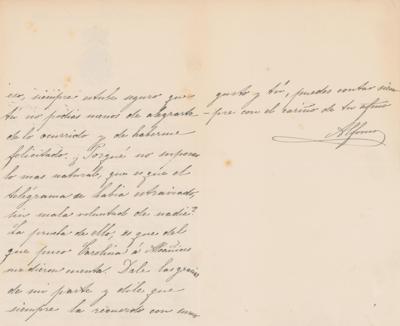 eso, siempre estube seguro que
tú no podias menos de alegrarte
de lo ocurrido y de haberme
felicitado. ¿Porqué no suponer
lo mas natural, que es que el
telégrama se habia estraviado,
sin mala voluntad de nadie?
La prueba de ello, es que del
que puso Carolina á
me dieron cuenta. Dale las gracias
de mi parte y diles que
siempre la recuerdo con sumo
gusto y tú, puedes contar siem
-pre con el cariño de tu afmo
Alfonso